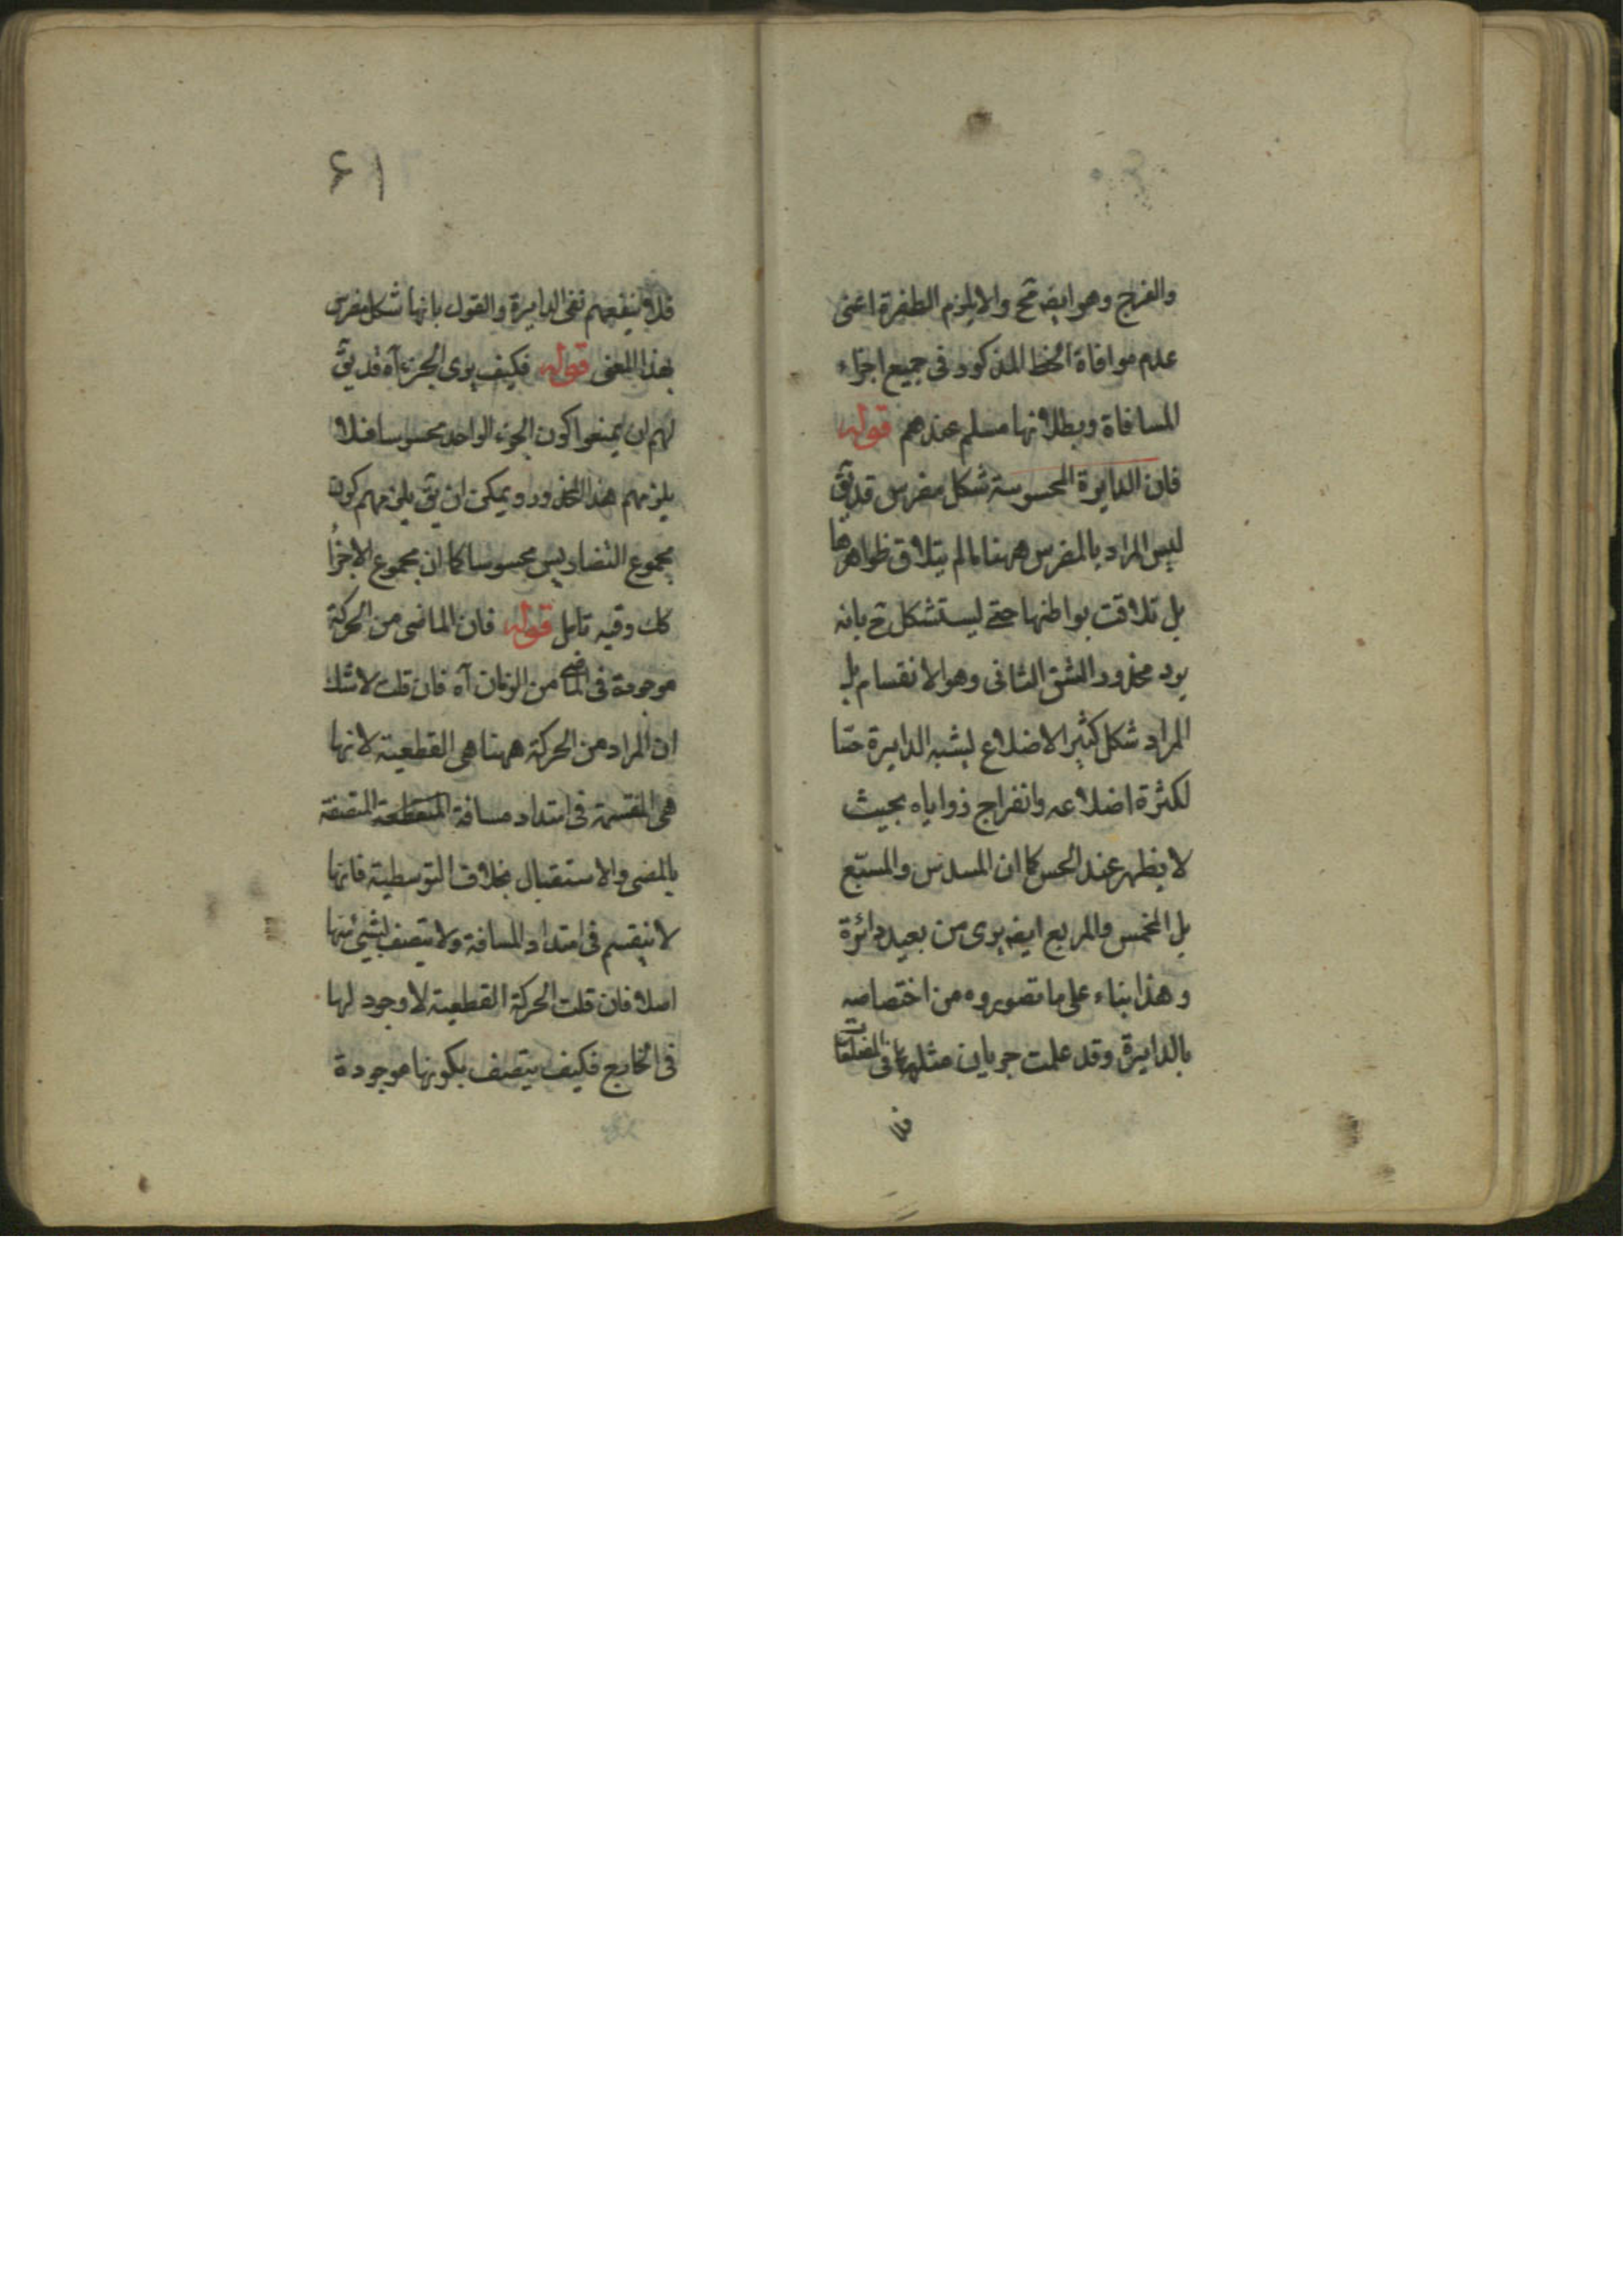 والفرج وهو ايضه مح والا يلزم الطفرة اعنى
عدم موافاة الخط المذكور فى جميع اجزاء
المسافاة وبطلانها مسلم عندهم قوله
فان الدايرة المحسوسة شكل مضرس قد يق
ليس المراد بالمضرس ههنا ما لم يتلاق ظواهرها
بل تلاقت بواطنها حتى ليستشكل ح بانه
يرد محذور الشق الثانى وهو الانقسام بل
المراد شكل كثير الاضلاع يشبه الدايرة حسا
لكثرة اضلاعه وانفراج زواياه بحيث
لا يظهر عند الحس كما ان المسدس والمسبع
بل المخمس والمربع ايضه يرى من بعيد دائرة
وهذا بناء على ما تصوروه من اختصاصه
بالدايرة وقد علمت جريان مثلها فى المضلعات
فلا
٦١
فلا ينفعهم نفى الدايرة والقول بانها شكل مضرس
بهذا المعنى قوله فكيف يرى الجزء آه قد يق
لهم ان يمنعوا كون الجزء الواحد محسوسا فلا
يلزمهم هذا المحذور ويمكن ان يق يلزمهم كون
مجموع التضاريس محسوسا كما ان مجموع الاجزا
كك وفيه تامل قوله فان الماضى من الحركة
موجودة فى الماضى من الزمان آه فان قلت لا شك
ان المراد من الحركة ههنا هى القطعية لانها
هى المنقسمة فى امتداد مسافة المنقطعة المتصفة
بالمضى والاستقبال بخلاف التوسطية فانها
لا ينقسم فى امتداد المسافة ولا يتصف بشىء منها
اصلا فان قلت الحركة القطعية لا وجود لها
فى الخارج فكيف يتصف بكونها موجودة